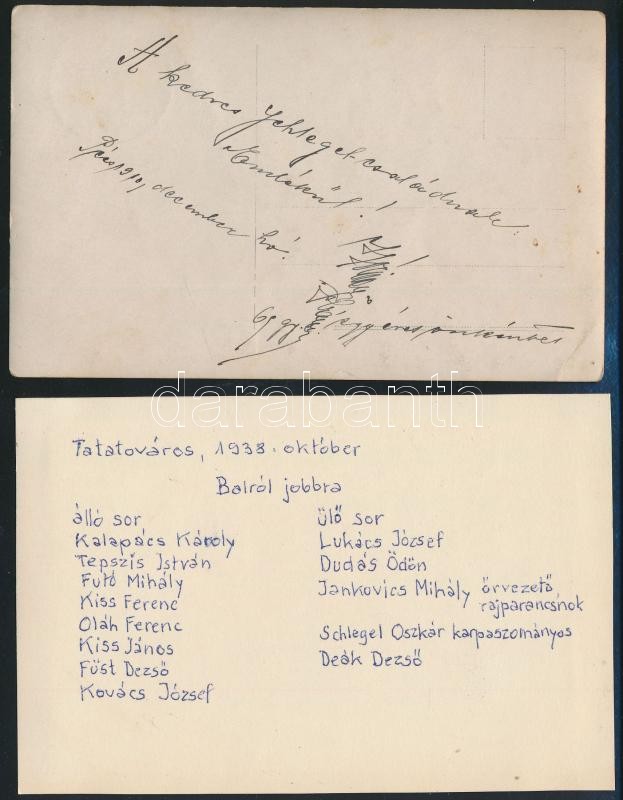 A kedves Schlegel családnak
Emlékül!
Pécs, 1910, december hó.
egyéves önkéntes
darabanth
Tatatováros, 1938. október
Balról jobbra
álló sor
Kalapács Károly
Tepszis István
Futó Mihály
Kiss Ferenc
Oláh Ferenc
Kiss János
Füst Dezső
Kovács József
ülő sor
Lukács József
Dudás Ödön
Jankovics Mihály őrvezető
rajparancsnok
Schlegel Oszkár karpaszományos
Deák Dezső